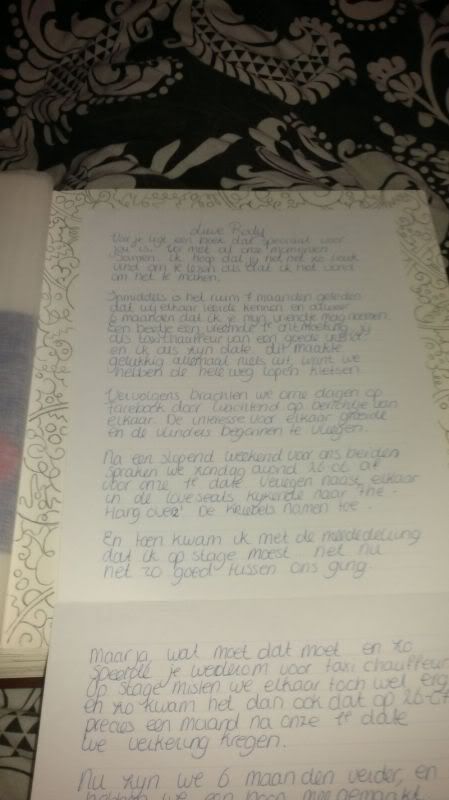 Lieve Rody
Voor je ligt een boek dat speciaal voor
jou is. Vol met al onze momenten
samen. Ik hoop dat jij het net zo leuk
vind om te lezen als dat ik het vond
om het te maken.
Inmiddels is het ruim 7 maanden geleden
dat wij elkaar leerde kennen en alweer
6 maanden dat ik je mijn vriendje mag noemen.
Een beetje een vreemde 1e ontmoeting, jij
als taxichauffeur van een goede vriend
en ik als zijn date. Dit maakte
gelukkig allemaal niets uit, want we
hebben de hele weg lopen kletsen.
Vervolgens brachten we onze dagen op
facebook door wachtend op berichtje van
elkaar. De interesse voor elkaar groeide
en de vlinders begonnen te vliegen.
Na een slopend weekend voor ons beiden
spraken we zondag avond 26-06 af
voor onze 1e date. Verlegen naast elkaar
in de loveseats kijkende naar The
Hang over2. De kriebels namen toe.
En toen kwam ik met de mededeling
dat ik op stage moest.. net nu
het zo goed tussen ons ging.
Maar ja, wat moet dat moet en zo
speelde je wederom voor taxi chauffeur
Op stage misten we elkaar toch wel erg
en zo kwam het dan ook dat op 26-07
precies een maand na onze 1e date
we verkering kregen.
Nu zijn we 6 maanden verder, en
hebben we een hoop meegemaakt